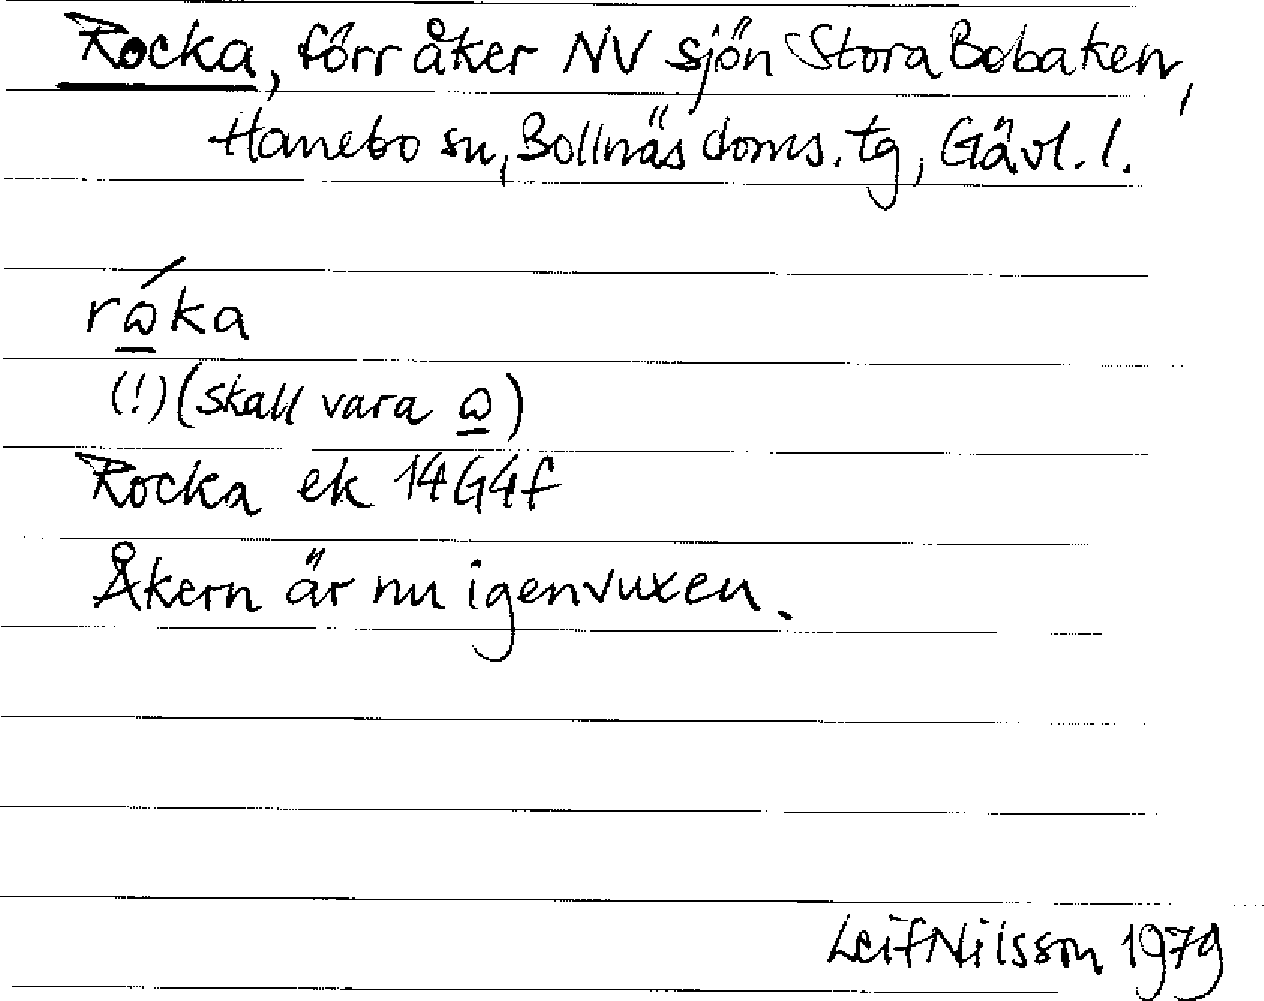 Rocka, förr åker NV sjön Stora Bobaken,
Hanebo sn, Bollnäs doms. tg, Gävl. l.
rώka
(!) (skall vara ω)
Rocka ek 14G4f
Åkern är nu igenvuxen.
Leif Nilsson 1979